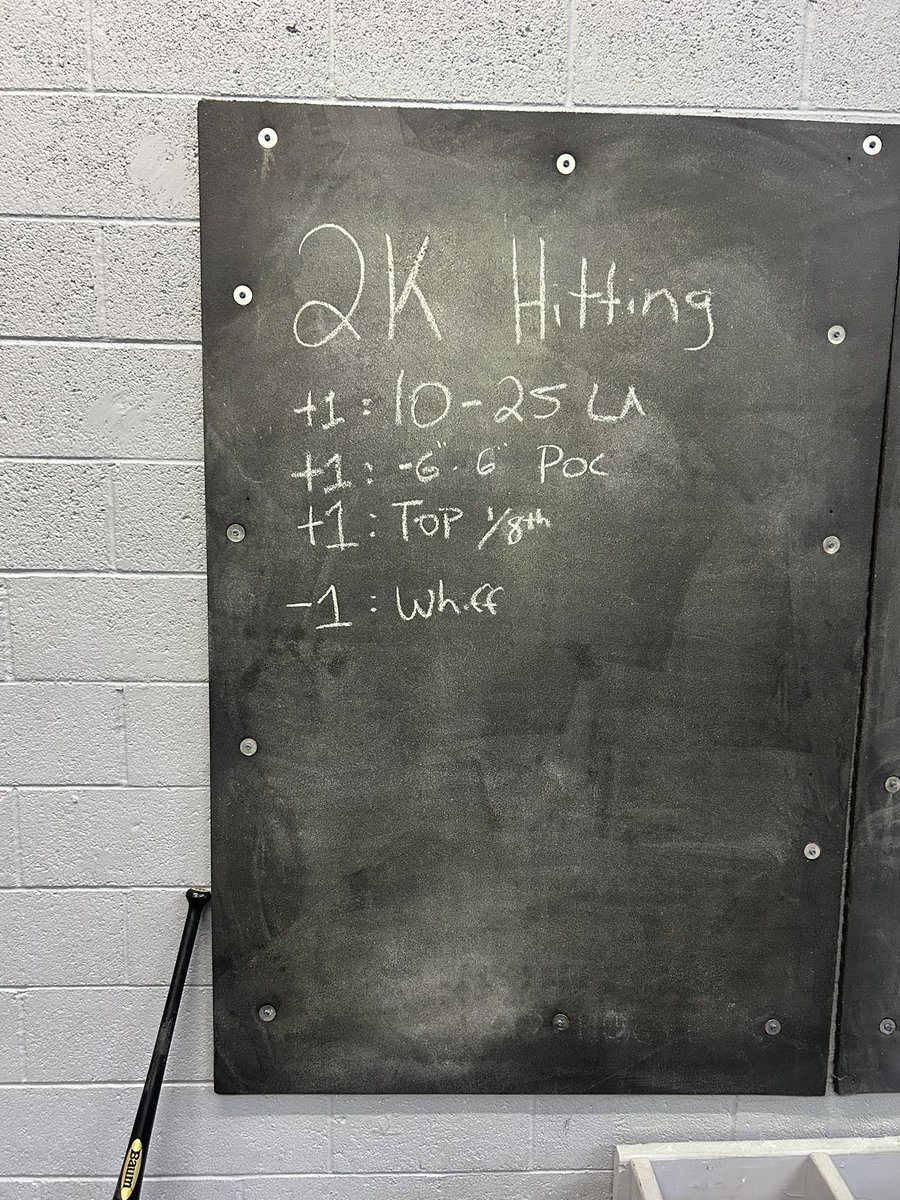 2K Hitting
+1: 10-25 LA
+1: -6"- 6" POC
+1: TOP 1/8th
-1: Whiff
Baum